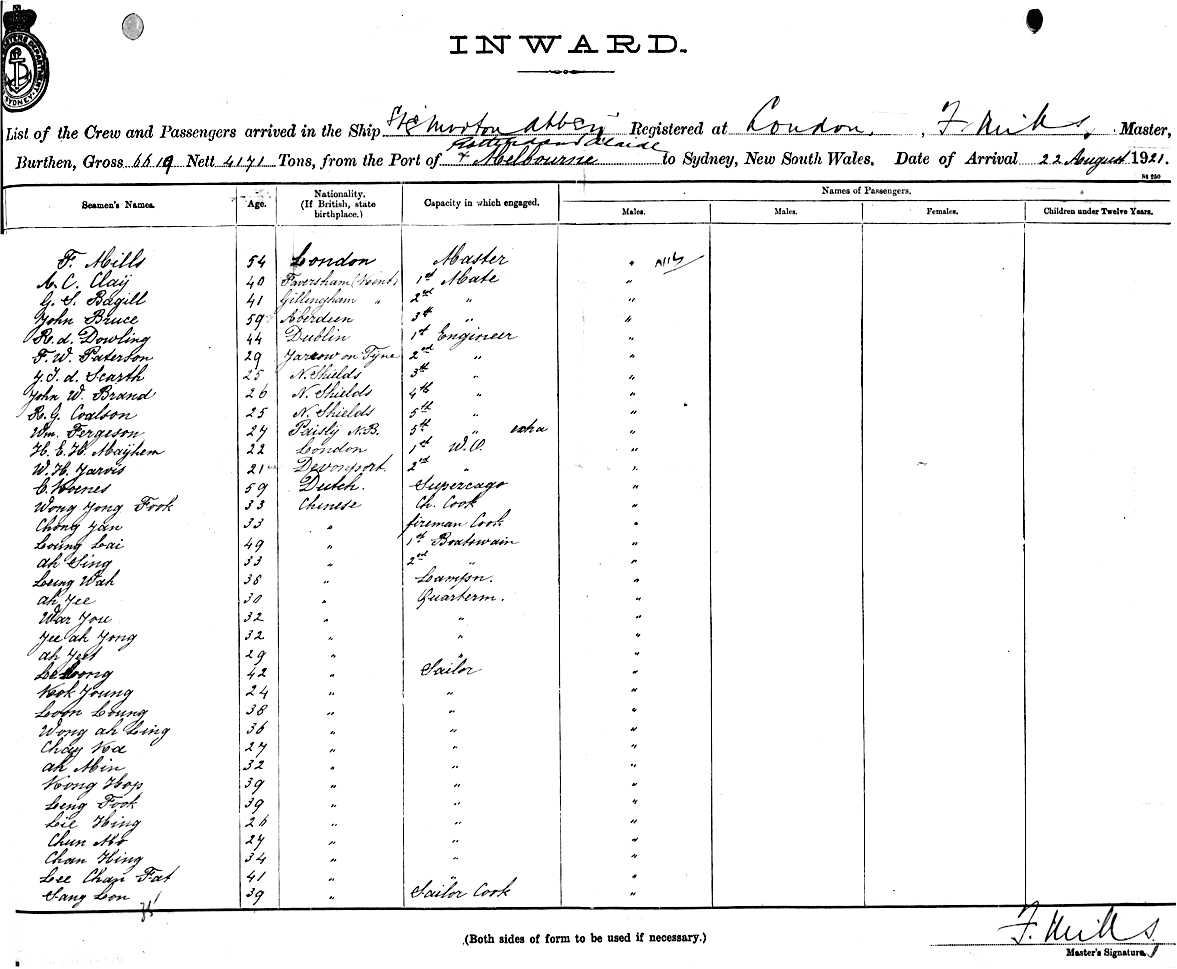 INWARD.
List of the Crew and Passengers arrived in the Ship Morton Abbey Registered at London, F. Mills, Master,
Burthen, Gross 6619 Nett 4171 Tons, from the Port of Rotterdam Adelaide & Melbourne to Sydney, New South Wales. Date of Arrival 22 August 1921.
Seamen's Names. Age. Nationality. (If British, state birthplace.) Capacity in which engaged. Names of Passengers.
Males. Males. Females. Children under Twelve Years.
F. Mills 54 London Master " Nil
A. C. Clay 40 Faversham (Kent) 1st Mate "
G. S. Bagill 41 Gillingham " 2nd " "
John Bruce 59 Aberdeen 3th " "
R. d. Dowling 44 Dublin 1st Engineer "
F. W. Paterson 29 Jarrow on Tyne 2nd " "
J. T. d. Scarth 25 N. Shields 3th " "
John W. Brand 26 N. Shields 4th " "
R. G. Coalson 25 N. Shields 5th " "
Wm. Fergeson 27 Paisly N.B. 5th " extra "
H. E. H. Mayhem 22 London 1st W.O. "
W. H. Jarvis 21 Devonport. 2nd " "
C. Koenes 59 Dutch. Supercago "
Wong Jong Fook 33 Chinese Ch. Cook "
Chong Jan 33 " fireman Cook "
Loung Lai 49 " 1st Boatswain "
ah Sing 33 " 2nd " "
Leung Wah 38 " Lampn. "
ah Jee 30 " Quarterm. "
War Jou 32 " " "
Jee ah Jong 32 " " "
ah Jeet 29 " " "
Le Long 42 " Sailor "
Kok Young 24 " " "
Loon Loung 38 " " "
Wong ah Ling 36 " " "
Chay Ka 27 " " "
ah Min 32 " " "
Kong Hop 39 " " "
Leng Fook 39 " " "
Lie Hing 26 " " "
Chun Mo 27 " " "
Chan Hing 34 " " "
Lee Chan Fat 41 " " "
Sang Lon 39 " Sailor Cook "
(Both sides of form to be used if necessary.)
F. Mills
Master's Signature.